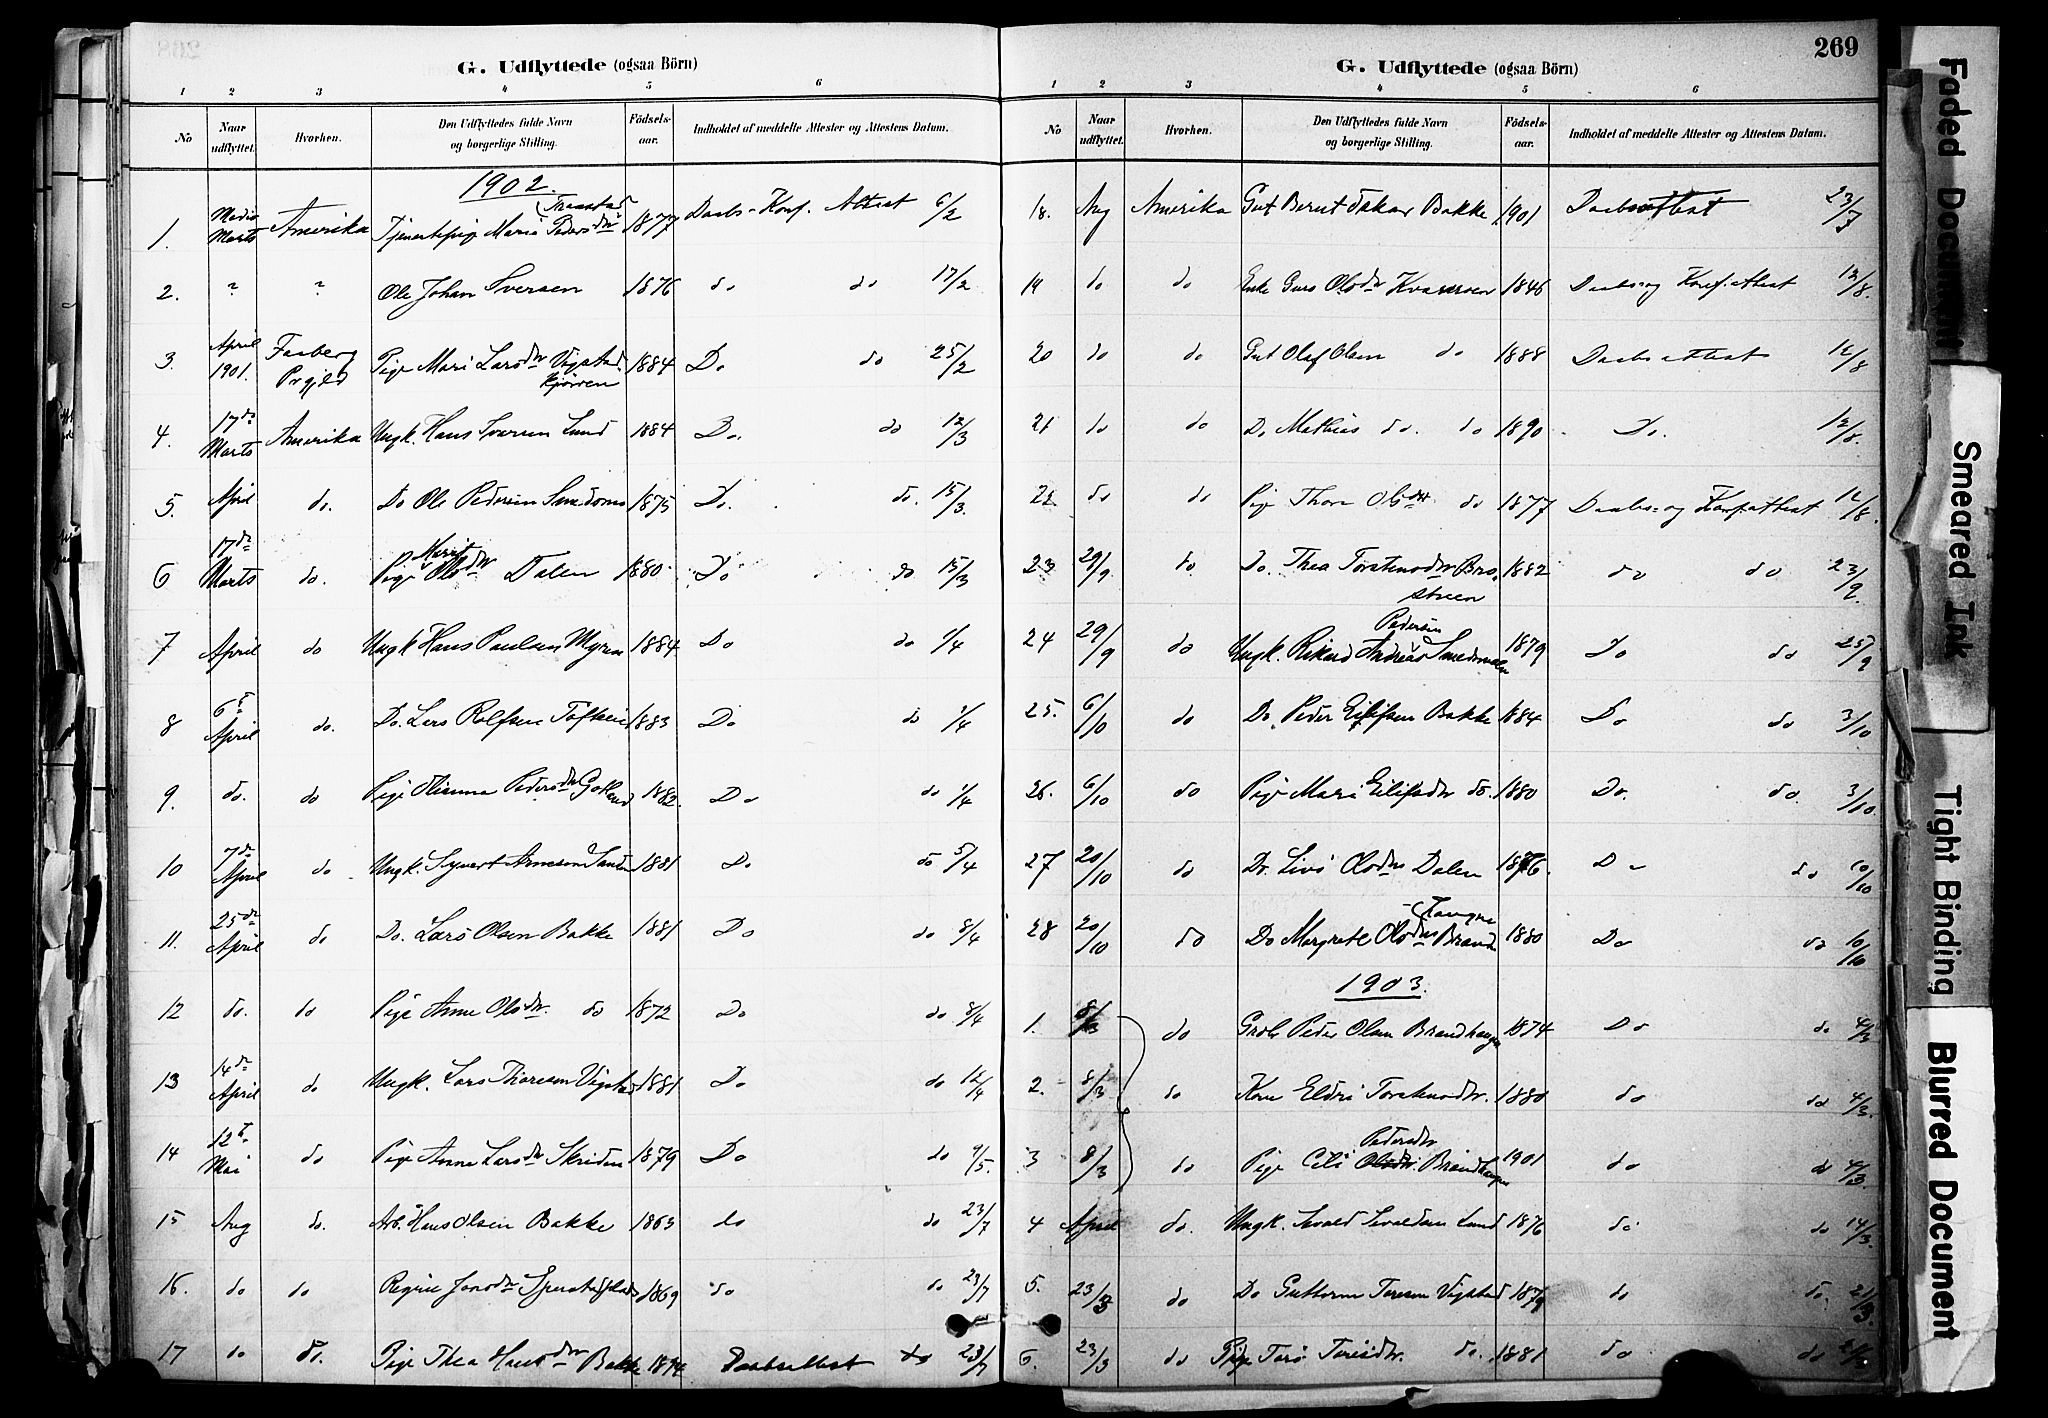 G. Udflyttede (ogsaa Börn)
1 2 3 4 5 6
No Naar udflyttet. Hvorhen. Den Udflyttedes fulde Navn og borgerlige Stilling. Födsels-aar. Indholdet af meddelte Attester og Attestens Datum.
1902.
1. Medio Marts Amerika Maria Pedersdtr 1877 Daabs- Konf. Attest 6/2
2. " " Ole Johan Iversen 1876 do do 17/2
3. April 1901. Faaberg Prgjeld Pige Mari Larsdtr Vigstad 1884 Do do 25/2
4. 17de Marts Amerika Ungk. Hans Iversen Lund 1884 Do. do 12/3
5. April do. Do Ole Pedersen 1875 Do. do. 15/3.
6 17de Marts do. Pige Marit Olsdtr Dalen 1880 Do do 15/3
7 April do Ungk Hans Paulsen Myren 1884 Do do 1/4
8 6te April do. Do. Lars Rolfsen 1883 Do do 1/4
9. do. do Pige Pedersdtr 1882 Do do 1/4
10 7de April do Ungk. Syvert Arnesen 1881 Do do 5/4
11. 25de April do Do. Lars Olsen Bakke 1881 Do do 8/4
12 do. do Pige Anne Olsdtr. do 1872 Do do 8/4
13 14de April do Ungk. Lars Thoresen Vigstad 1881 Do do 12/4
14 12te Mai do Pige Anne Larsdtr Skriden 1879 Do do 9/5.
15 Aug do. Arb. Hans Olsen Bakke 1863 do do 23/7
16. do do Regine Jonsdtr 1869 do do 23/7
17 do do. Pige Thea Hansdtr Bakke 1894 Daabsattest do 23/7
269
G. Udflyttede (ogsaa Börn)
1 2 3 4 5 6
No Naar udflyttet. Hvorhen. Den Udflyttedes fulde Navn og borgerlige Stilling. Födsels-aar. Indholdet af meddelte Attester og Attestens Datum.
18. Aug Amerika Gut Bernt Oskar Bakke 1901 Daabsattest 23/7
19 do do Enke Guro Olsdtr 1846 Daabs- og Konf. attest 12/8.
20 do do Gut Olaf Olsen do 1888 Daabsattest 12/8
21 do do Do Mathias do. do 1890 Do. 12/8.
22 do do Pige Thora Olsdtr do 1877 Daabs- og Konf. attest 12/8.
23 29/9 do Do. Thea Torstensdtr 1882 do do 23/9.
24 29/9 do Ungk. Rikard Andreas Pedersen 1879 Do do 25/9
25. 6/10 do Do. Peder Eilifsen Bakke 1884 Do do 3/10
26. 6/10 do Pige Mari Eilifsdtr do. 1880 Do. do. 3/10.
27 20/10 do Do. Livo Olsdtr Dalen 1876. Do do 10/10
28 20/10 do Do Margrete Olsdtr 1880 Do do 10/10
1903.
1. 8/3 do Peder Olsen Brandhaugen 1874 Do do 4/3
2. 8/3 do Kone Eldri Torstensdtr. 1880 do do 4/3.
3 8/3 do Pige Pedersdtr Brandhaugen 1901 do do 4/3.
4 April do. Ungk. Sivald Sivaldsen Lund 1876 do do 14/3.
5. 23/3 do Do Guttorm Toresen Vigstad 1879 do do. 21/3.
6. 23/3 do Pige Toresdtr. do. 1881 do do 21/3
Faded Document
Smeared Ink
Tight Binding
Blurred Document